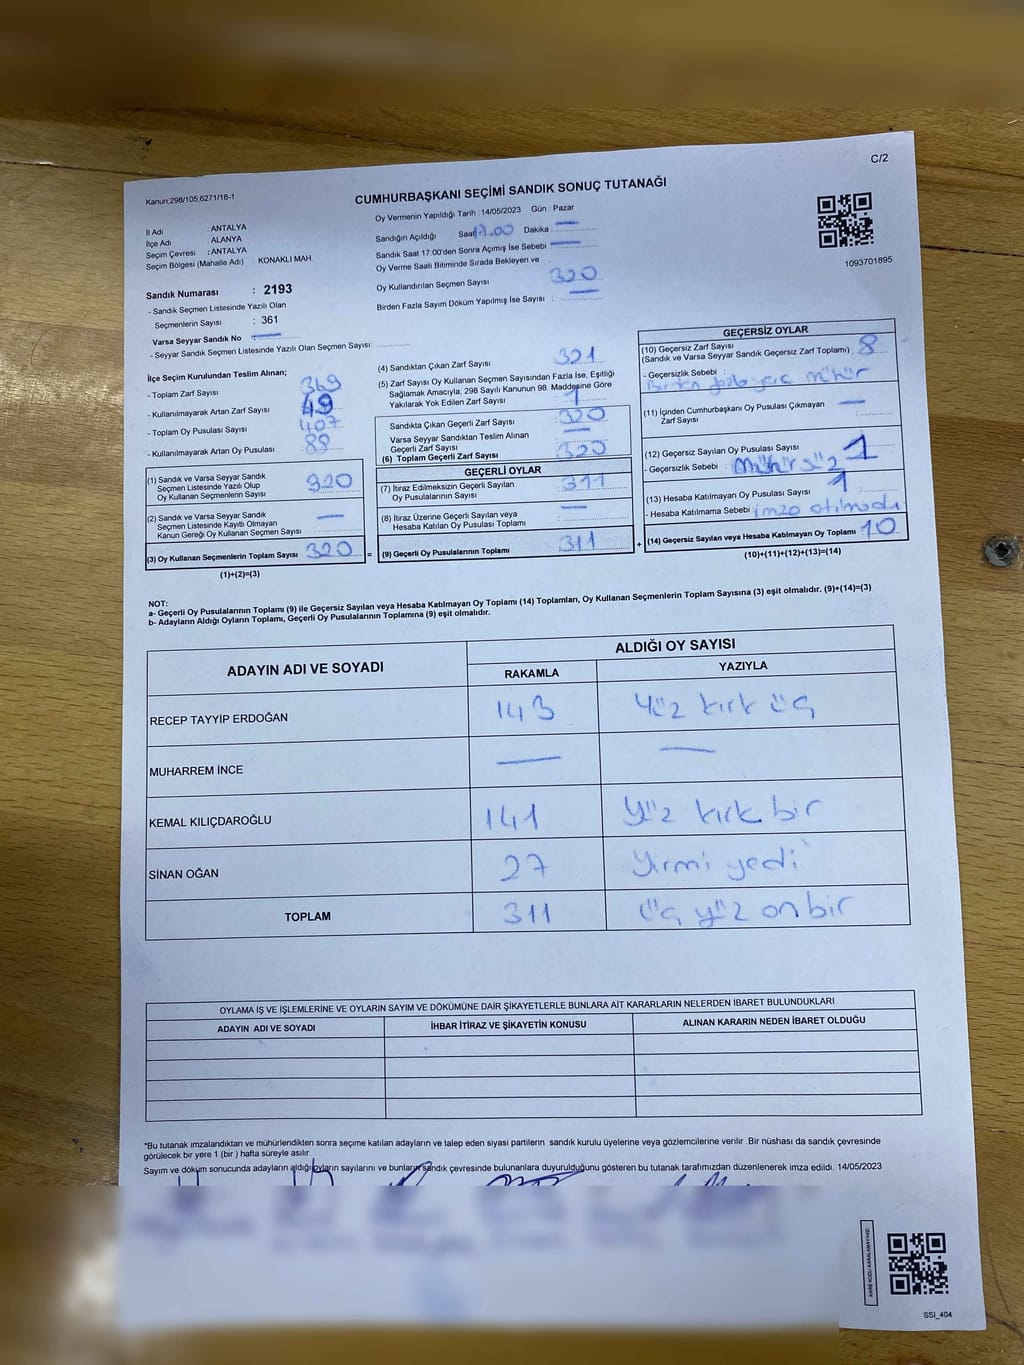 C/2
Kanun,298/105,6271/18-1
CUMHURBAŞKANI SEÇİMİ SANDIK SONUÇ TUTANAĞI
İl Adı : ANTALYA
İlçe Adı : ALANYA
Seçim Çevresi : ANTALYA
Seçim Bölgesi (Mahalle Adı) : KONAKLI MAH
Sandık Numarası : 2193
- Sandık Seçmen Listesinde Yazılı Olan
Seçmenlerin Sayısı : 361
Varsa Seyyar Sandık No —
- Seyyar Sandık Seçmen Listesinde Yazılı Olan Seçmen Sayısı:
Oy Vermenin Yapıldığı Tarih : 14/05/2023 Gün : Pazar
Sandığın Açıldığı Saat 17.00 Dakika : —
Sandık Saat 17:00'den Sonra Açımış İse Sebebi —
Oy Verme Saati Bitiminde Sırada Bekleyen ve :
Oy Kullandırılan Seçmen Sayısı 320
Birden Fazla Sayım Döküm Yapılmış İse Sayısı : —
1093701895
İlçe Seçim Kurulundan Teslim Alınan;
- Toplam Zarf Sayısı 369
- Kullanılmayarak Artan Zarf Sayısı 49
- Toplam Oy Pusulası Sayısı 407
- Kullanılmayarak Artan Oy Pusulası 88
(1) Sandık ve Varsa Seyyar Sandık
Seçmen Listesinde Yazılı Olup
Oy Kullanan Seçmenlerin Sayısı 320
(2) Sandık ve Varsa Seyyar Sandık
Seçmen Listesinde Kayıtlı Olmayan
Kanun Gereği Oy Kullanan Seçmen Sayısı : —
(3) Oy Kullanan Seçmenlerin Toplam Sayısı 320 =
(1)+(2)=(3)
(4) Sandıktan Çıkan Zarf Sayısı 321
(5) Zarf Sayısı Oy Kullanan Seçmen Sayısından Fazla İse, Eşitliği
Sağlamak Amacıyla, 298 Sayılı Kanunun 98. Maddesine Göre
Yakılarak Yok Edilen Zarf Sayısı : 1
Sandıkta Çıkan Geçerli Zarf Sayısı 320
Varsa Seyyar Sandıktan Teslim Alınan
Geçerli Zarf Sayısı —
(6) Toplam Geçerli Zarf Sayısı 320
GEÇERLİ OYLAR
(7) İtiraz Edilmeksizin Geçerli Sayılan
Oy Pusulalarının Sayısı 311
(8) İtiraz Üzerine Geçerli Sayılan veya
Hesaba Katılan Oy Pusulası Toplamı —
(9) Geçerli Oy Pusulalarının Toplamı 311 +
GEÇERSİZ OYLAR
(10) Geçersiz Zarf Sayısı
(Sandık ve Varsa Seyyar Sandık Geçersiz Zarf Toplamı) : 8
- Geçersizlik Sebebi :
Birden fazla yere mühür
(11) İçinden Cumhurbaşkanı Oy Pusulası Çıkmayan
Zarf Sayısı —
(12) Geçersiz Sayılan Oy Pusulası Sayısı 1
- Geçersizlik Sebebi : mühürsüz
(13) Hesaba Katılmayan Oy Pusulası Sayısı 1
- Hesaba Katılmama Sebebi : imza atılmadı
(14) Geçersiz Sayılan veya Hesaba Katılmayan Oy Toplamı 10
(10)+(11)+(12)+(13)=(14)
NOT:
a- Geçerli Oy Pusulalarının Toplamı (9) ile Geçersiz Sayılan veya Hesaba Katılmayan Oy Toplamı (14) Toplamları, Oy Kullanan Seçmenlerin Toplam Sayısına (3) eşit olmalıdır. (9)+(14)=(3)
b- Adayların Aldığı Oyların Toplamı, Geçerli Oy Pusulalarının Toplamına (9) eşit olmalıdır.
ADAYIN ADI VE SOYADI ALDIĞI OY SAYISI
RAKAMLA YAZIYLA
RECEP TAYYİP ERDOĞAN 143 yüz kırk üç
MUHARREM İNCE — —
KEMAL KILIÇDAROĞLU 141 yüz kırk bir
SİNAN OĞAN 27 yirmi yedi
TOPLAM 311 üç yüz on bir
OYLAMA İŞ VE İŞLEMLERİNE VE OYLARIN SAYIM VE DÖKÜMÜNE DAİR ŞİKAYETLERLE BUNLARA AİT KARARLARIN NELERDEN İBARET BULUNDUKLARI
ADAYIN ADI VE SOYADI İHBAR İTİRAZ VE ŞİKAYETİN KONUSU ALINAN KARARIN NEDEN İBARET OLDUĞU
*Bu tutanak imzalandıktan ve mühürlendikten sonra seçime katılan adayların ve talep eden siyasi partilerin sandık kurulu üyelerine veya gözlemcilerine verilir .Bir nüshası da sandık çevresinde
görülecek bir yere 1 (bir ) hafta süreyle asılır.
Sayım ve döküm sonucunda adayların aldığı oyların sayılarını ve bunların sandık çevresinde bulunanlara duyurulduğunu gösteren bu tutanak tarafımızdan düzenlenerek imza edildi. 14/05/2023
KARE KODU KARALAMAYINIZ!
SSI_404